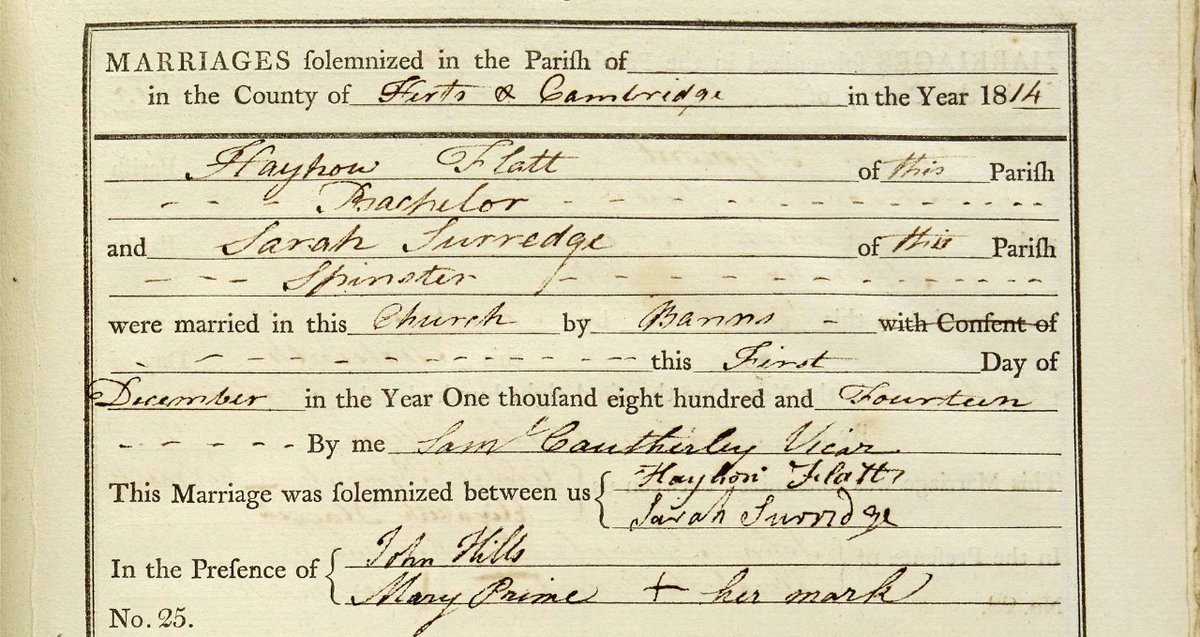 MARRIAGES ſolemnized in the Pariſh of
in the County of Herts & Cambridge in the Year 1814
Hayhow Flatt of this Pariſh
Bachelor
and Sarah Surredge of this Pariſh
Spinster
were married in this Church by Banns - with Conſent of
this First Day of
December in the Year One thouſand eight hundred and Fourteen
By me Saml Cautherley Vicar
This Marriage was ſolemnized between us { Hayhow Flatt
Sarah Surridge
In the Preſence of { John Hills
Mary Prime + her mark
No. 25.